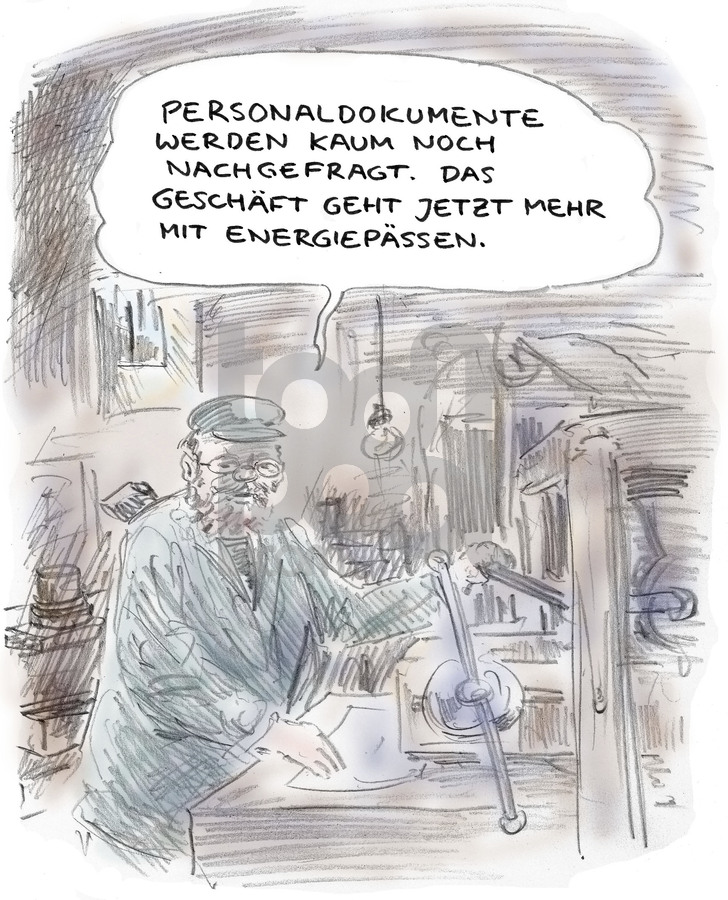 PERSONALDOKUMENTE
WERDEN KAUM NOCH
NACHGEFRAGT. DAS
GESCHÄFT GEHT JETZT MEHR
MIT ENERGIEPÄSSEN.